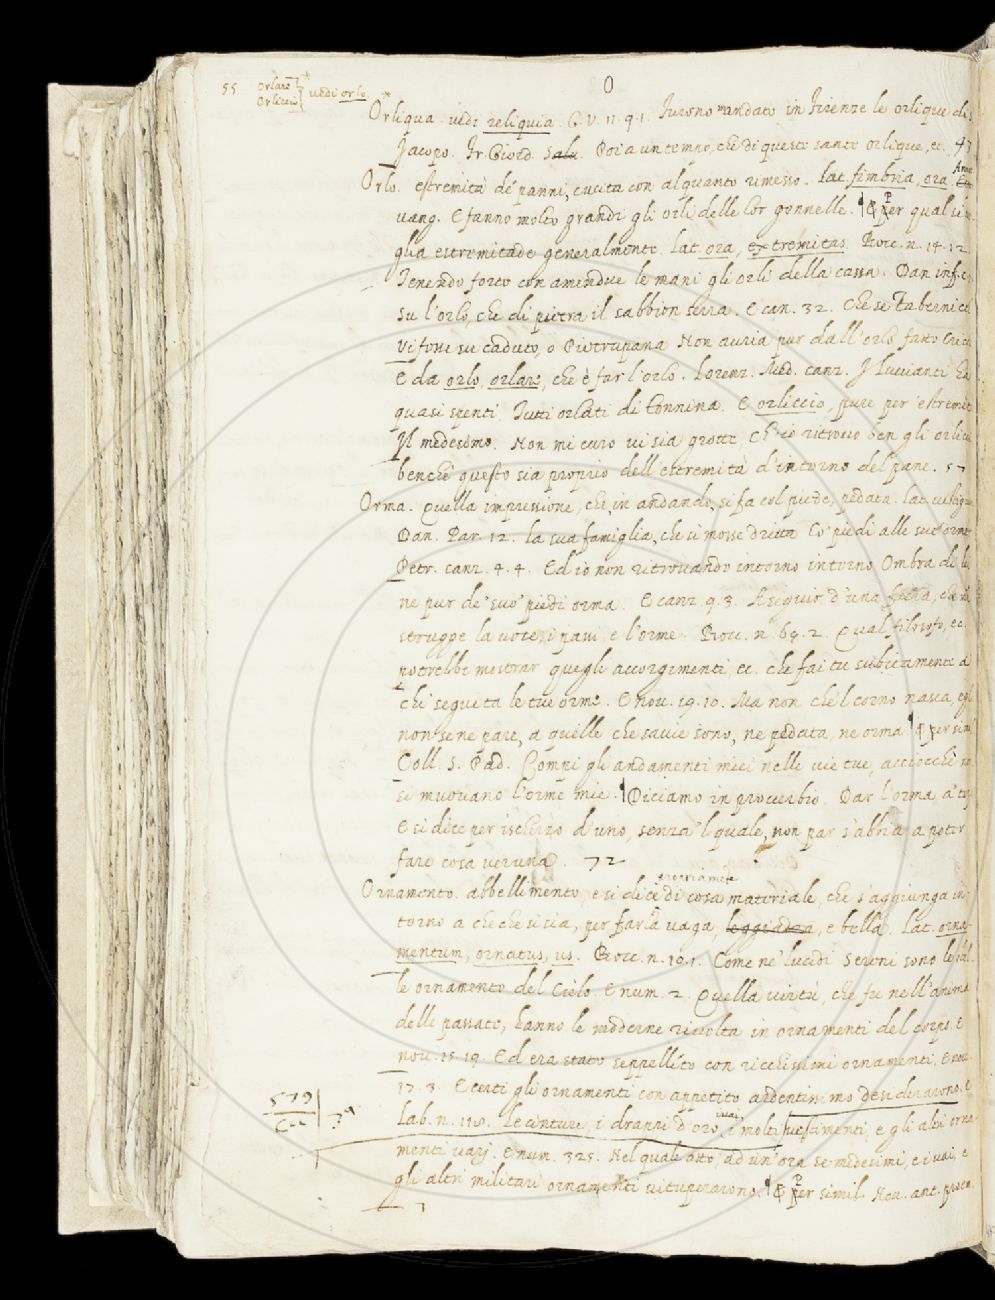 O
55 Orlare Orliccio vedi orlo
Orliqua. vedi reliquia. G.V. 11.91. Furono mandato in Firenze le orlique di S.
Jacopo. Fr. Giord. Salu. Poi a un tempo, che di queste sante orlique, ec. 43
Orlo. estremità de' panni, cucita con alquanto rimesso. Lat. fimbria, ora,
uang. E fanno molto grandi gli orli delle lor gonnelle. ¶ E per qual si
glia estremitade generalmente. Lat. ora, extremitas. Bocc. n. 14. 12
Tenendo forte con amendue le mani gli orli della cassa. Dan. inf.
su l'orlo, che di pietra il sabbion serra. E can. 32. Che se Tabernic
vi fosse su caduto, o Pietrapana Non auria pur dall'orlo fatto
E da orlo, orlare, che è far l'orlo. Lorenz. Med. canz. J
quasi spenti Tutti orlati di Connina. E orliccio, pure per estremit
Il medesimo. Non mi curo vi sia grotte, Ch'io ritrouo ben gli orlicc
benchè questo sia proprio dell'estremità d'intorno del pane. 57
Orma. Quella impressione, che in andando, si fa col piede, pedata. Lat. vestigiu
Dan. Par. 12. La sua famiglia, che si mosse dritta Co' piedi alle sue orme
Petr. canz. 4. 4. Ed io non ritrouando intorno intorno Ombra di lei
ne pur de' suo' piedi orma. E canz. 9. 3. A seguir d'una fera, che mi
strugge la voce, i passi, e l'orme. Bocc. n. 69. 2. Qual filosofo, ec.
potrebbe mostrar quegli accorgimenti ec. che fai tu subitamente a
chi seguita le tue orme. E nou. 19. 10. Ma non che 'l corno nasca, egli
non se ne pare, a quelle che sauie sono, ne pedata, ne orma ¶ E per simi
Coll. S. Pad. Compi gli andamenti miei nelle vie tue, acciocchè no
si muouano l'orme mie. ¶ Diciamo in prouerbio. Dar l'orma a'
E si dice per ischerzo d'uno, senza 'l quale, non par s'abbia a poter
fare cosa veruna. 72
Ornamento. abbellimento, e si dice propriamēte di cosa materiale, che s'aggiunga in
torno a che che si sia, per farla vaga, leggiadra, e bella. Lat. orna
mentum, ornatus, us. Bocc. n. 10. 1. Come ne' lucidi sereni sono le stel
le ornamento del Cielo. E num. 2. Quella virtù, che fu nell'anima
delle passate, hanno le moderne riuolta in ornamenti del corpo. E
nou. 15. 19. Ed era stato seppellito con ricchissimi ornamenti. E nou.
17. 3. E certi gli ornamenti con appetito ardentissimo desiderarono. E
Lab. n. 110. Le cinture, i drappi d'oro, i vai, i molti vestimenti, e gli altri orna
menti varj. E num. 325. Nel quale atto, ad un'ora se medesimi, e i vai, e
gli altri militari ornamenti vituperarono. ¶ E per simil. Nou. ant. proem.
579